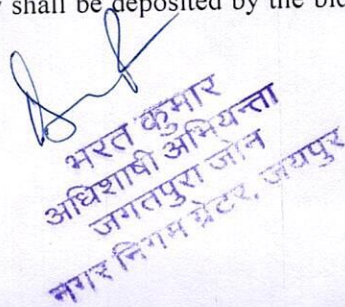 shall be deposited by the
भरत कुमार
अधिशाषी अभियन्ता
जगतपुरा जोन
नगर निगम ग्रेटर, जयपुर